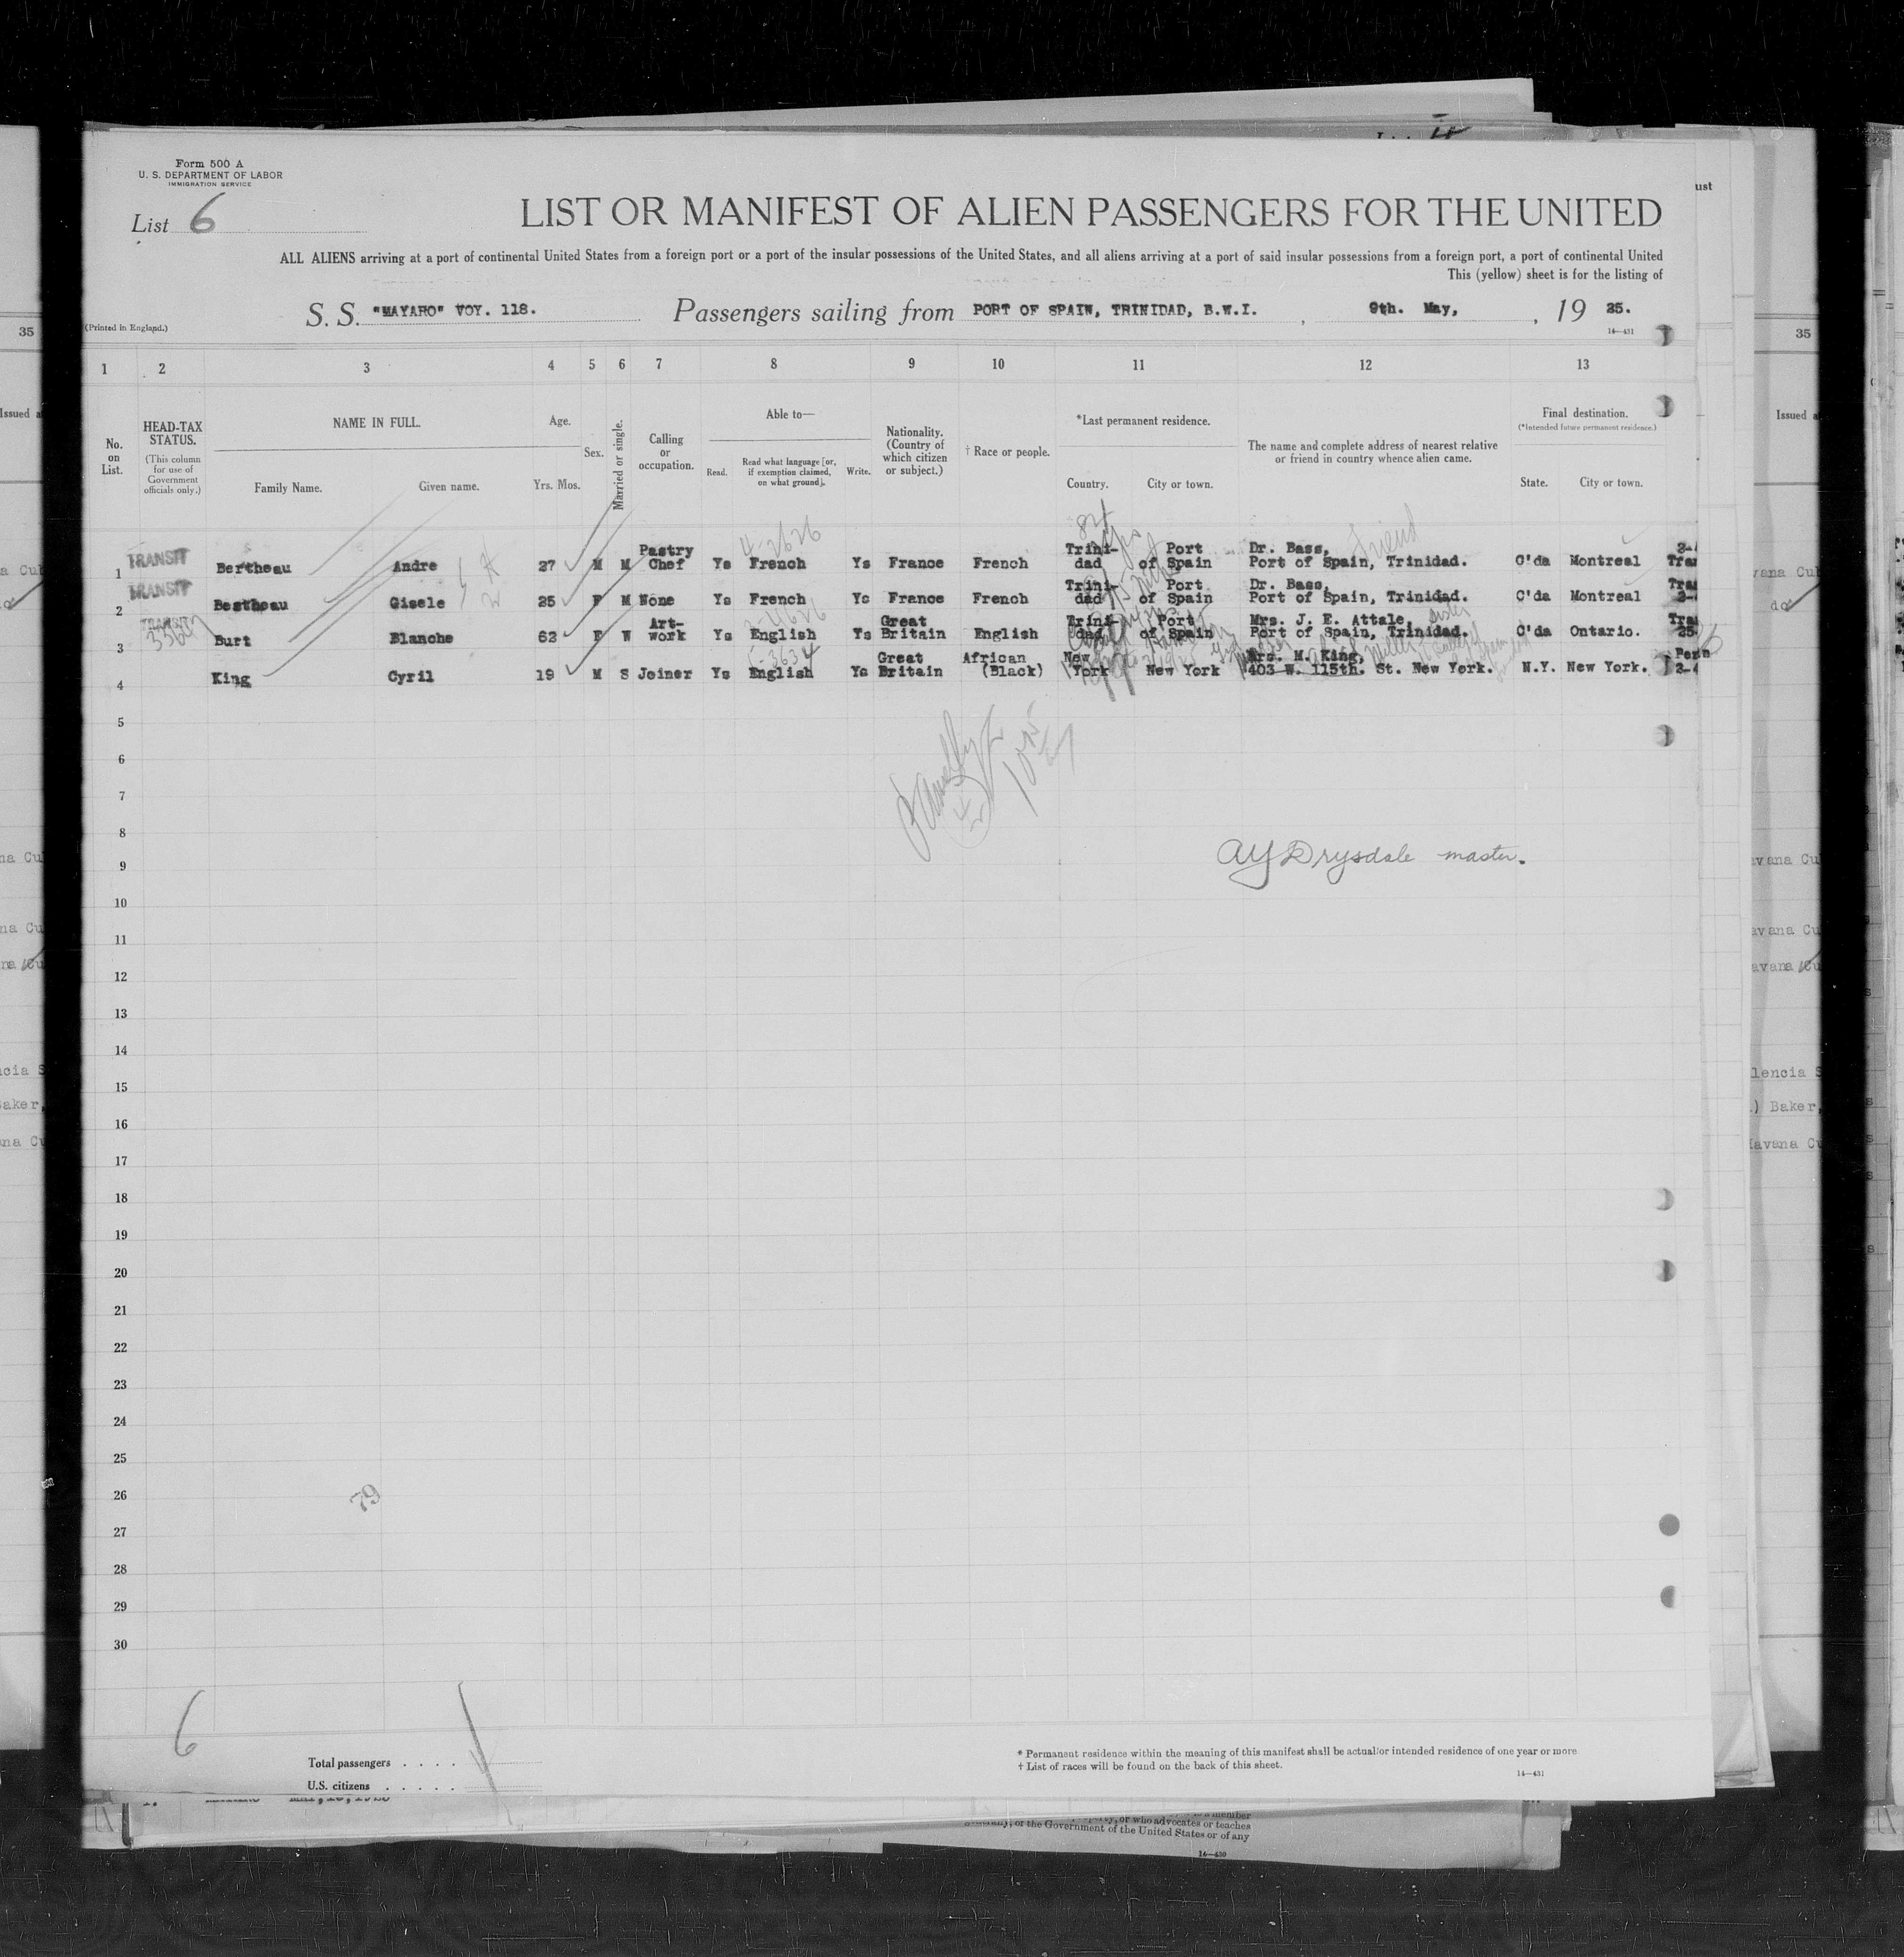 Form 500 A
U. S. DEPARTMENT OF LABOR
IMMIGRATION SERVICE
List 6
LIST OR MANIFEST OF ALIEN PASSENGERS FOR THE UNITED
ALL ALIENS arriving at a port of continental United States from a foreign port or a port of the insular possessions of the United States, and all aliens arriving at a port of said insular possessions from a foreign port, a port of continental United
This (yellow) sheet is for the listing of
(Printed in England.)
S. S. "MAYARO" VOY. 118. Passengers sailing from PORT OF SPAIN, TRINIDAD, B.W.I. , 9th. May, , 19 25.
14—431
1 2 3 4 5 6 7 8 9 10 11 12 13
No. on List.
HEAD-TAX STATUS.
(This column for use of Government officials only.)
NAME IN FULL.
Family Name. Given name.
Age.
Yrs. Mos.
Sex.
Married or single.
Calling or occupation.
Able to—
Read. Read what language [or, if exemption claimed, on what ground]. Write.
Nationality. (Country of which citizen or subject.)
† Race or people.
*Last permanent residence.
Country. City or town.
The name and complete address of nearest relative or friend in country whence alien came.
Final destination.
(*Intended future permanent residence.)
State. City or town.
1 TRANSIT Bertheau Andre 27 M M Pastry Chef Ys French Ys France French Trini-dad Port of Spain Dr. Bass, Port of Spain, Trinidad. friend C'da Montreal
2 TRANSIT Bertheau Gisele 25 F M None Ys French Ys France French Trini-dad Port of Spain Dr. Bass, Port of Spain, Trinidad. C'da Montreal
3 TRANSIT Burt Blanche 62 F W Art-work Ys English Ys Great Britain English Trini-dad Port of Spain Mrs. J. E. Attale, sister Port of Spain, Trinidad. C'da Ontario.
4 King Cyril 19 M S Joiner Ys English Ys Great Britain African (Black) New York New York Mrs. M. King, 403 W. 115th. St. New York. N.Y. New York.
5
6
7
8
9
AY Drysdale master.
10
11
12
13
14
15
16
17
18
19
20
21
22
23
24
25
26
79
27
28
29
30
6
Total passengers . . . .
U.S. citizens . . . . .
* Permanent residence within the meaning of this manifest shall be actual or intended residence of one year or more.
† List of races will be found on the back of this sheet.
14—431
, or who advocates or teaches
, of the Government of the United States or of any
14—430